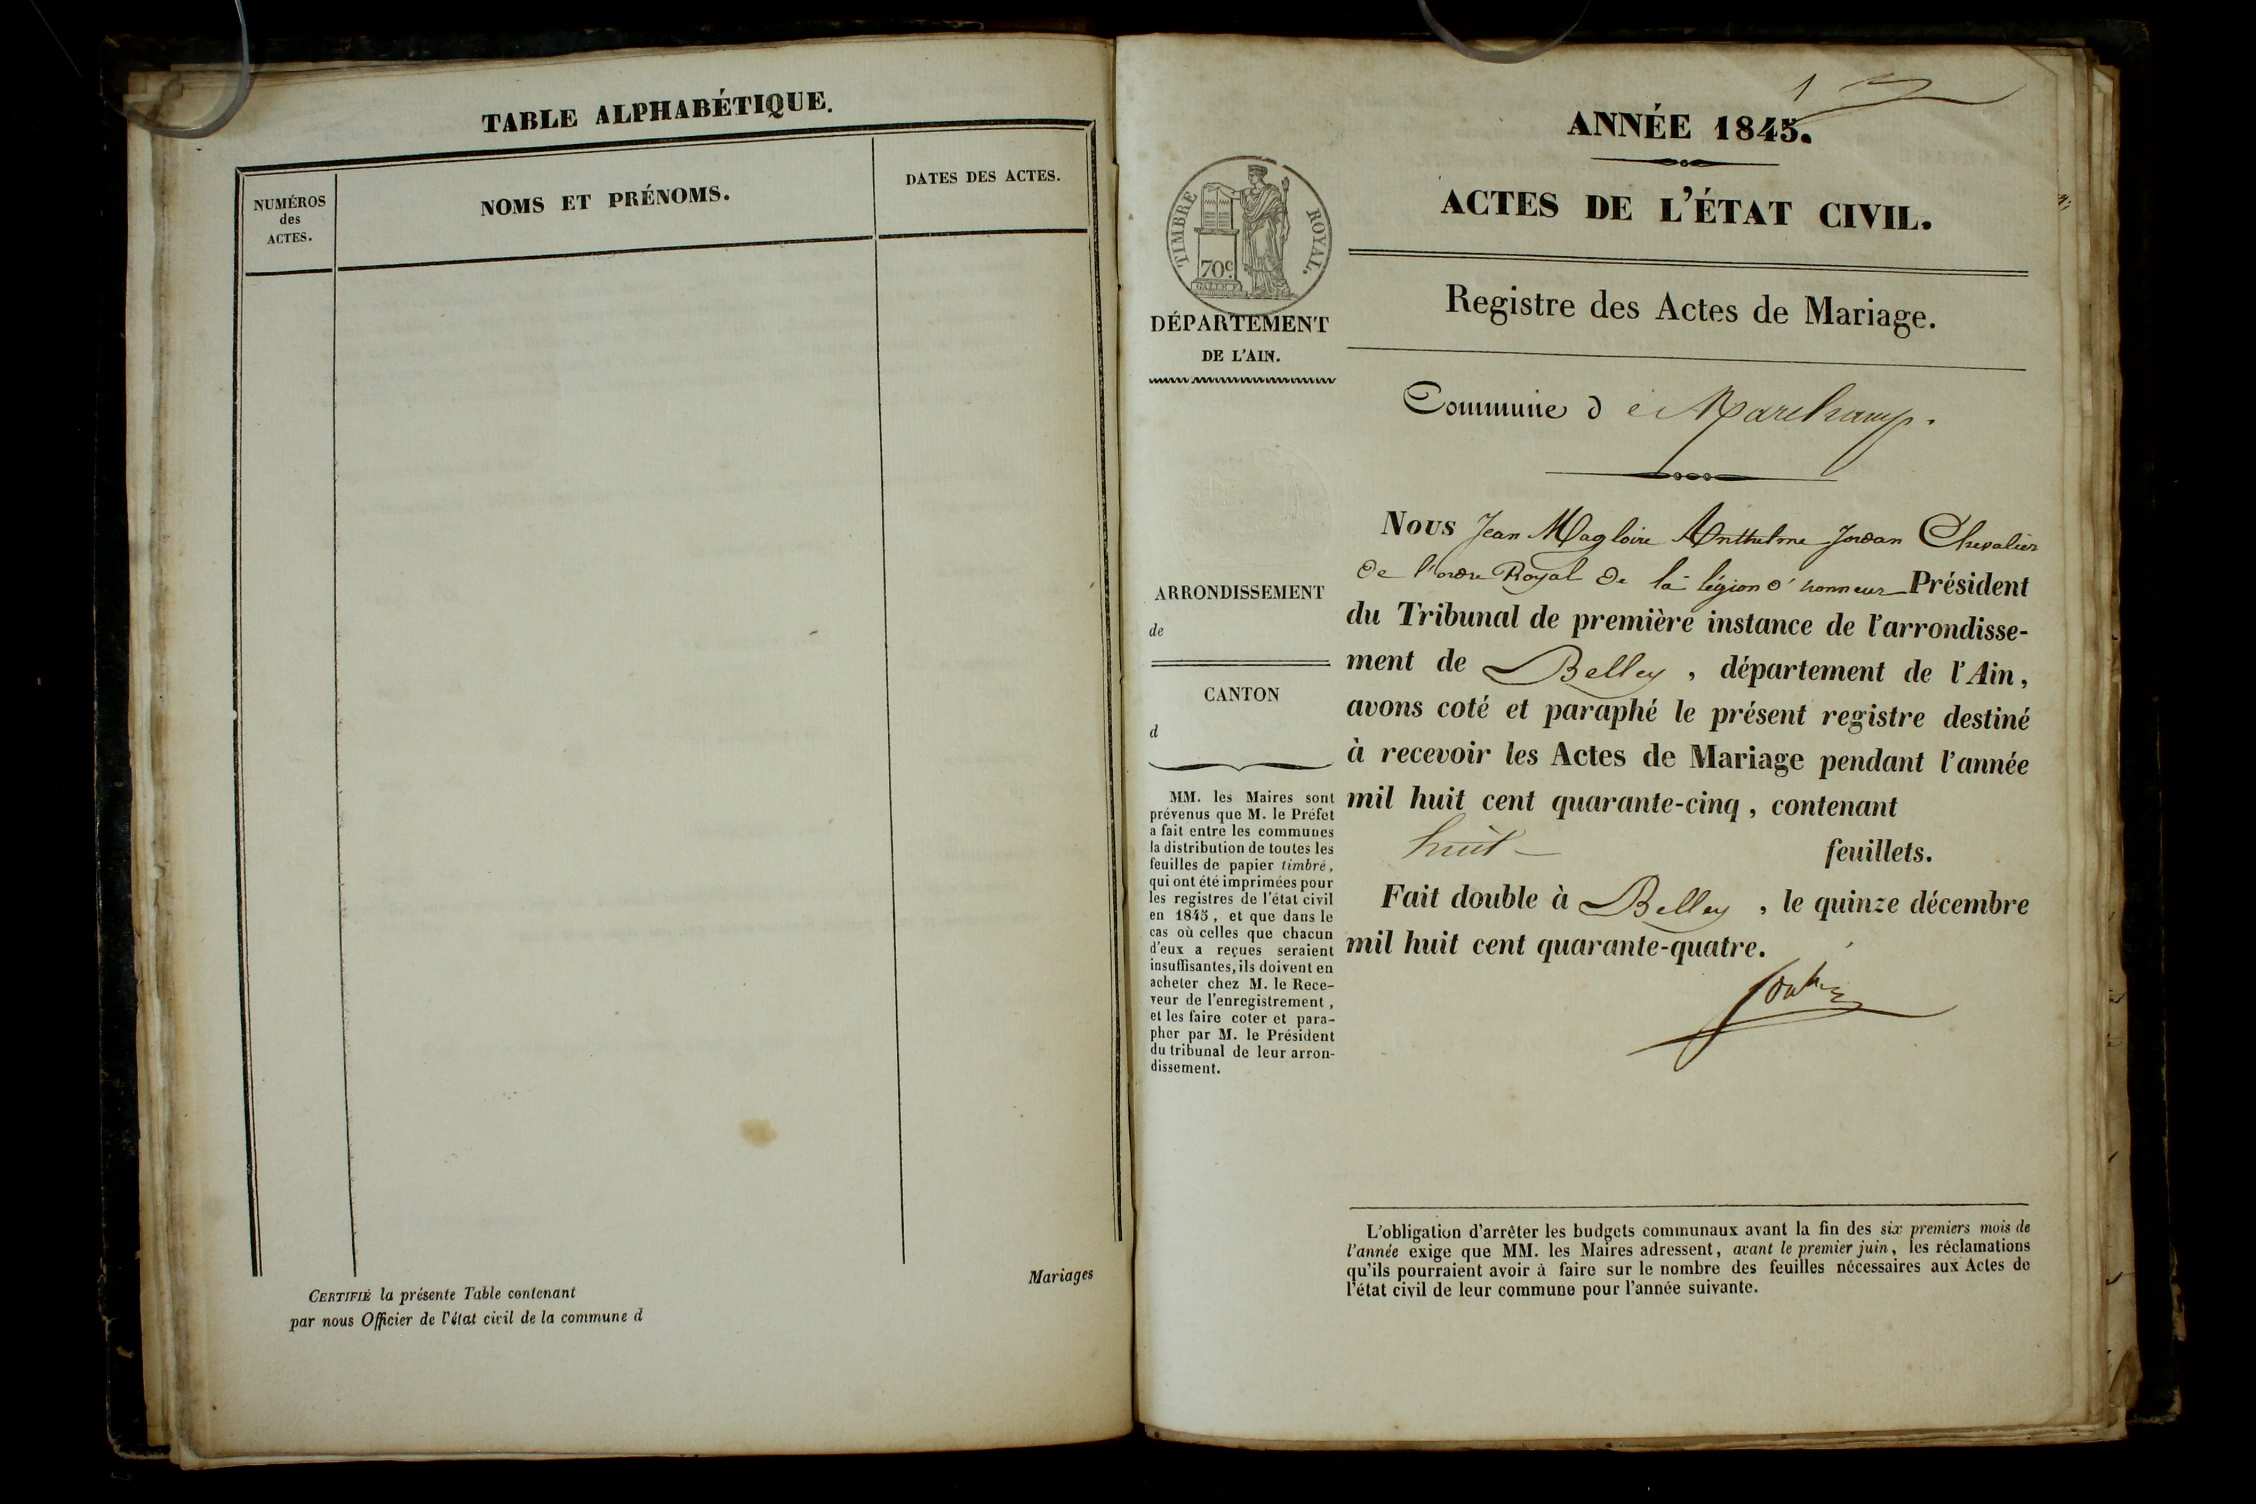 TABLE ALPHABÉTIQUE.
NUMÉROS
des
ACTES.
NOMS ET PRÉNOMS.
DATES DES ACTES.
CERTIFIÉ la présente Table contenant
Mariages
par nous Officier de l'état civil de la commune d
1
ANNÉE 1845.
ACTES DE L'ÉTAT CIVIL.
TIMBRE ROYAL.
70c
DÉPARTEMENT
DE L'AIN.
Registre des Actes de Mariage.
Commune de Marchamp.
ARRONDISSEMENT
de
CANTON
d
MM. les Maires sont
prévenus que M. le Préfet
a fait entre les communes
la distribution de toutes les
feuilles de papier timbré,
qui ont été imprimées pour
les registres de l'état civil
en 1845, et que dans le
cas où celles que chacun
d'eux a reçues seraient
insuffisantes, ils doivent en
acheter chez M. le Rece-
veur de l'enregistrement,
et les faire coter et para-
pher par M. le Président
du tribunal de leur arron-
dissement.
Nous Jean Magloire Anthelme Jordan Chevalier
de l'ordre Royal de la légion d'honneur Président
du Tribunal de première instance de l'arrondisse-
ment de Belley, département de l'Ain,
avons coté et paraphé le présent registre destiné
à recevoir les Actes de Mariage pendant l'année
mil huit cent quarante-cinq, contenant
huit feuillets.
Fait double à Belley, le quinze décembre
mil huit cent quarante-quatre.
L'obligation d'arrêter les budgets communaux avant la fin des six premiers mois de
l'année exige que MM. les Maires adressent, avant le premier juin, les réclamations
qu'ils pourraient avoir à faire sur le nombre des feuilles nécessaires aux Actes de
l'état civil de leur commune pour l'année suivante.